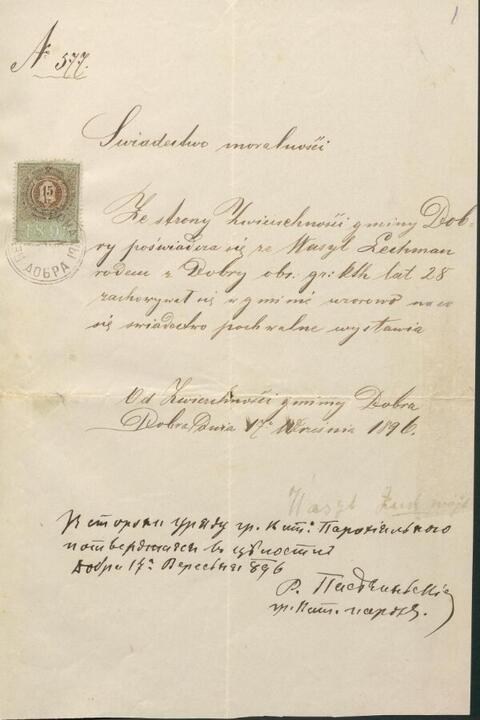 1
№ 577.
Świadectwo moralności
15
189
ДОБРА
Ze strony Zwierzchności gminy Dob-
ry poświadcza się że Wasyl Lechman
rodem z Dobry obr: gr: kth lat 28
zachowywał się w gminie wzorowo na co
się świadectwo pochwalne wystawia
Od Zwierzchności gminy Dobra
Dobra Dnia 17. Września 1896.
Wasyl wójt
Зъ стороны уряду гр. кат: Парохіяльного
потверджаєся въ цѣлости
Добра 17. Вересня 896
Р.
гр. кат. парох.